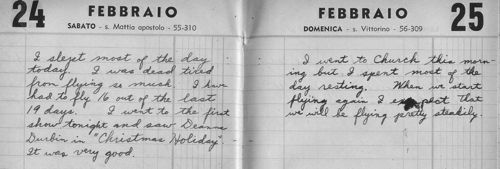 24 FEBBRAIO
SABATO - s. Mattia apostolo - 55-310
I slept most of the day
today. I was dead tired
from flying so much. I have
had to fly 16 out of the last
19 days. I went to the first
show tonight and saw Deanna
Durbin in "Christmas Holiday".
It was very good.
FEBBRAIO 25
DOMENICA - s. Vittorino - 56-309
I went to Church this morn-
ing but I spent most of the
day resting. When we start
flying again I expect that
we will be flying pretty steadily.